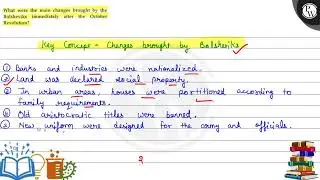 What were the main changes brought by the
Bolsheviks immediately after the October
Revolution?
Key Concept - Changes brought by Bolsheviks
① Banks and industries were nationalized.
② Land was declared social property.
③ In urban areas, houses were partitioned according to
family requirements.
④ Old aristocratic titles were banned.
⑤ New uniform were designed for the army and officials.